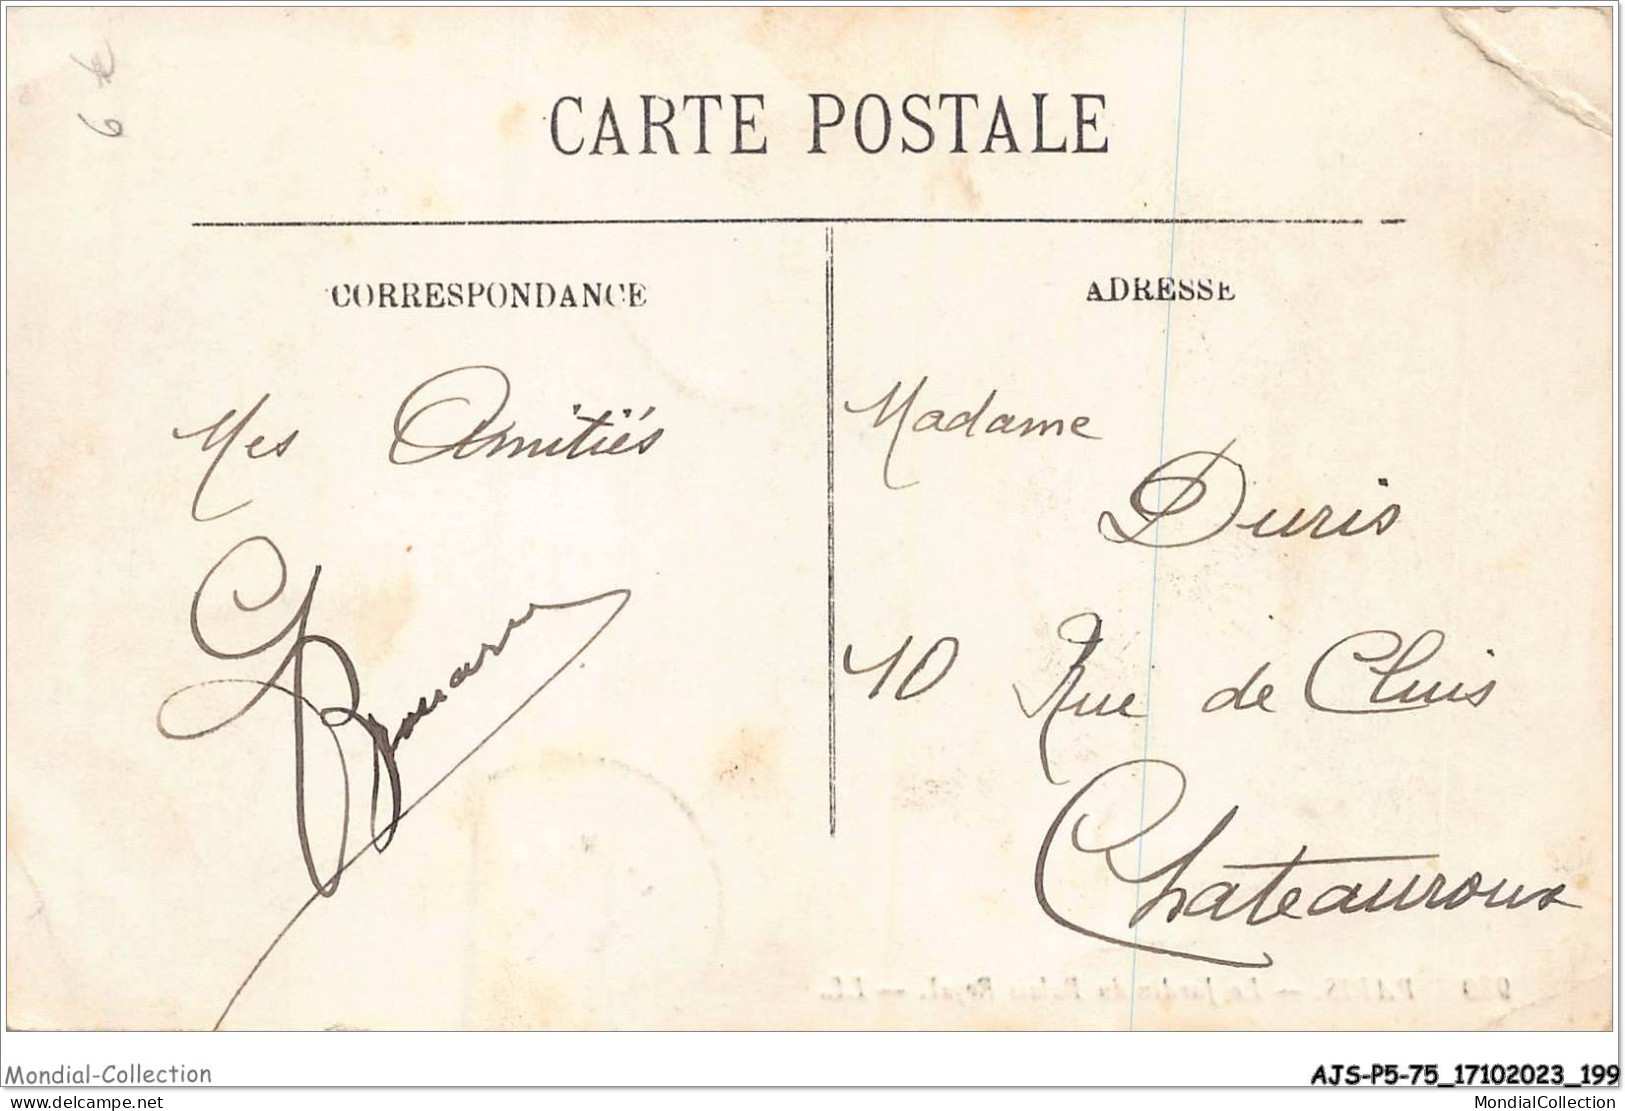 6 €
CARTE POSTALE
CORRESPONDANCE
ADRESSE
Mes Amitiés
Madame
Duris
10 Rue de Cluis
Chateauroux
939 PARIS. — Le Jardin du Palais Royal. — LL.
Mondial-Collection
AJS-P5-75_17102023_199
www.delcampe.net
MondialCollection